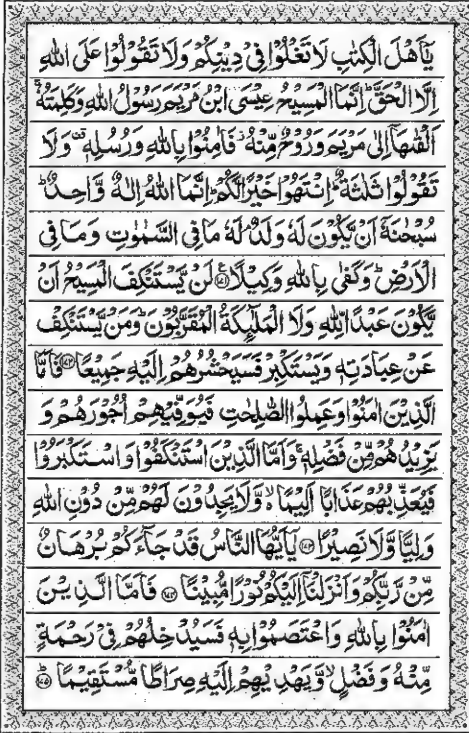 يٰۤاَهْلَ الْكِتٰبِ لَا تَغْلُوْا فِيْ دِيْنِكُمْ وَلَا تَقُوْلُوْا عَلَى اللّٰهِ
اِلَّا الْحَقَّ ؕ اِنَّمَا الْمَسِيْحُ عِيْسَى ابْنُ مَرْيَمَ رَسُوْلُ اللّٰهِ وَكَلِمَتُهٗ ۚ
اَلْقٰىهَاۤ اِلٰى مَرْيَمَ وَرُوْحٌ مِّنْهُ ؗ فَاٰمِنُوْا بِاللّٰهِ وَرُسُلِهٖ ۟ وَلَا
تَقُوْلُوْا ثَلٰثَةٌ ؕ اِنْتَهُوْا خَيْرًا لَّكُمْ ؕ اِنَّمَا اللّٰهُ اِلٰهٌ وَّاحِدٌ ؕ
سُبْحٰنَهٗۤ اَنْ يَّكُوْنَ لَهٗ وَلَدٌ ۘ لَهٗ مَا فِي السَّمٰوٰتِ وَمَا فِي
الْاَرْضِ ؕ وَكَفٰى بِاللّٰهِ وَكِيْلًا ﴿۱۷۱﴾ لَنْ يَّسْتَنْكِفَ الْمَسِيْحُ اَنْ
يَّكُوْنَ عَبْدًا لِّلّٰهِ وَلَا الْمَلٰٓئِكَةُ الْمُقَرَّبُوْنَ ؕ وَمَنْ يَّسْتَنْكِفْ
عَنْ عِبَادَتِهٖ وَيَسْتَكْبِرْ فَسَيَحْشُرُهُمْ اِلَيْهِ جَمِيْعًا ﴿۱۷۲﴾ فَاَمَّا
الَّذِيْنَ اٰمَنُوْا وَعَمِلُوا الصّٰلِحٰتِ فَيُوَفِّيْهِمْ اُجُوْرَهُمْ وَ
يَزِيْدُهُمْ مِّنْ فَضْلِهٖ ۚ وَاَمَّا الَّذِيْنَ اسْتَنْكَفُوْا وَاسْتَكْبَرُوْا
فَيُعَذِّبُهُمْ عَذَابًا اَلِيْمًا ۙ وَّلَا يَجِدُوْنَ لَهُمْ مِّنْ دُوْنِ اللّٰهِ
وَلِيًّا وَّلَا نَصِيْرًا ﴿۱۷۳﴾ يٰۤاَيُّهَا النَّاسُ قَدْ جَآءَكُمْ بُرْهَانٌ
مِّنْ رَّبِّكُمْ وَاَنْزَلْنَاۤ اِلَيْكُمْ نُوْرًا مُّبِيْنًا ﴿۱۷۴﴾ فَاَمَّا الَّذِيْنَ
اٰمَنُوْا بِاللّٰهِ وَاعْتَصَمُوْا بِهٖ فَسَيُدْخِلُهُمْ فِيْ رَحْمَةٍ
مِّنْهُ وَفَضْلٍ ۙ وَّيَهْدِيْهِمْ اِلَيْهِ صِرَاطًا مُّسْتَقِيْمًا ﴿۱۷۵﴾